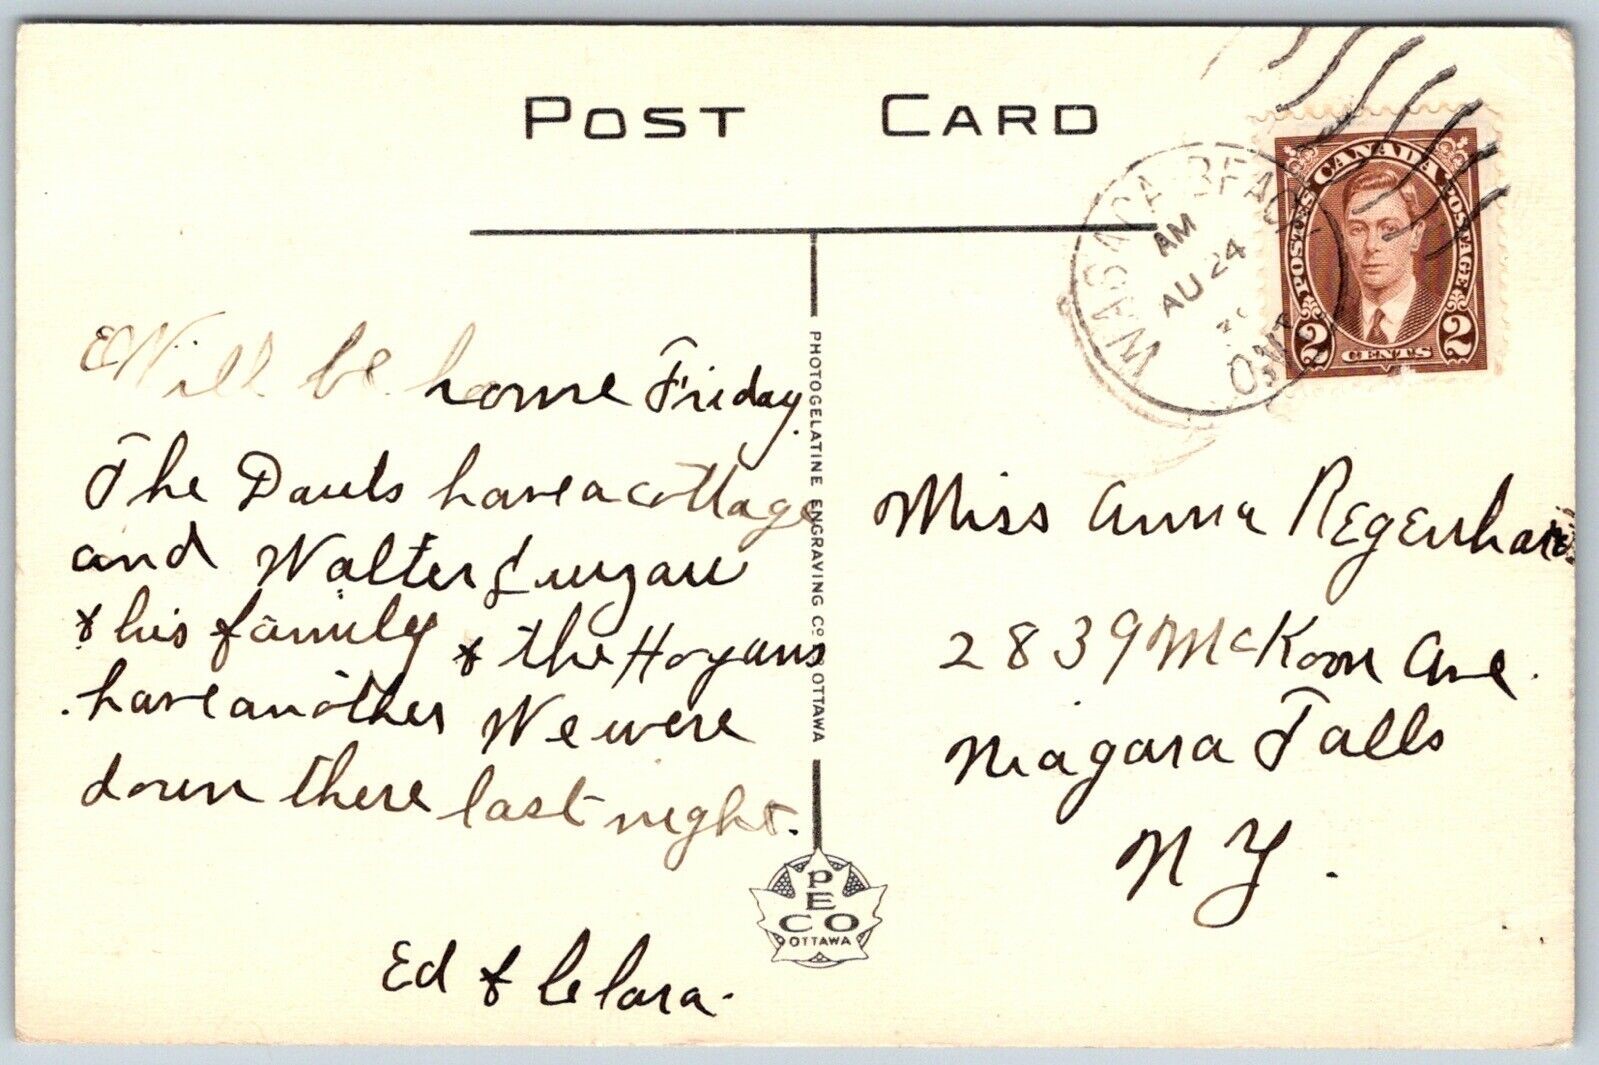 POST CARD
WASAGA BEACH
AM
AU 24
ONT
POSTES CANADA POSTAGE
2 CENTS 2
Will be home Friday.
The Dauts have a cottage
and Walter
& his family & the Hogans
have another We were
down there last night.
Ed & Clara.
PHOTOGELATINE ENGRAVING CO OTTAWA
PECO
OTTAWA
Miss Anna
2839 McKoon Ave.
Niagara Falls
N Y.